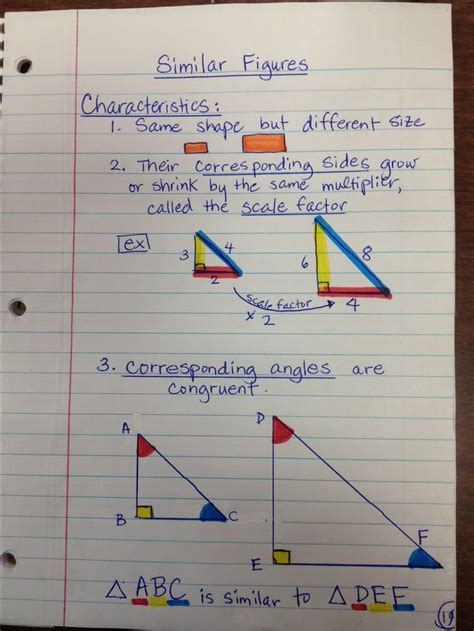 Similar Figures
Characteristics:
1. Same shape but different size
2. Their corresponding sides grow
or shrink by the same multiplier,
called the scale factor
ex
3 4
2
6 8
4
scale factor
x 2
3. Corresponding angles are
congruent.
A
B C
D
E F
△ ABC is similar to △ DEF
19